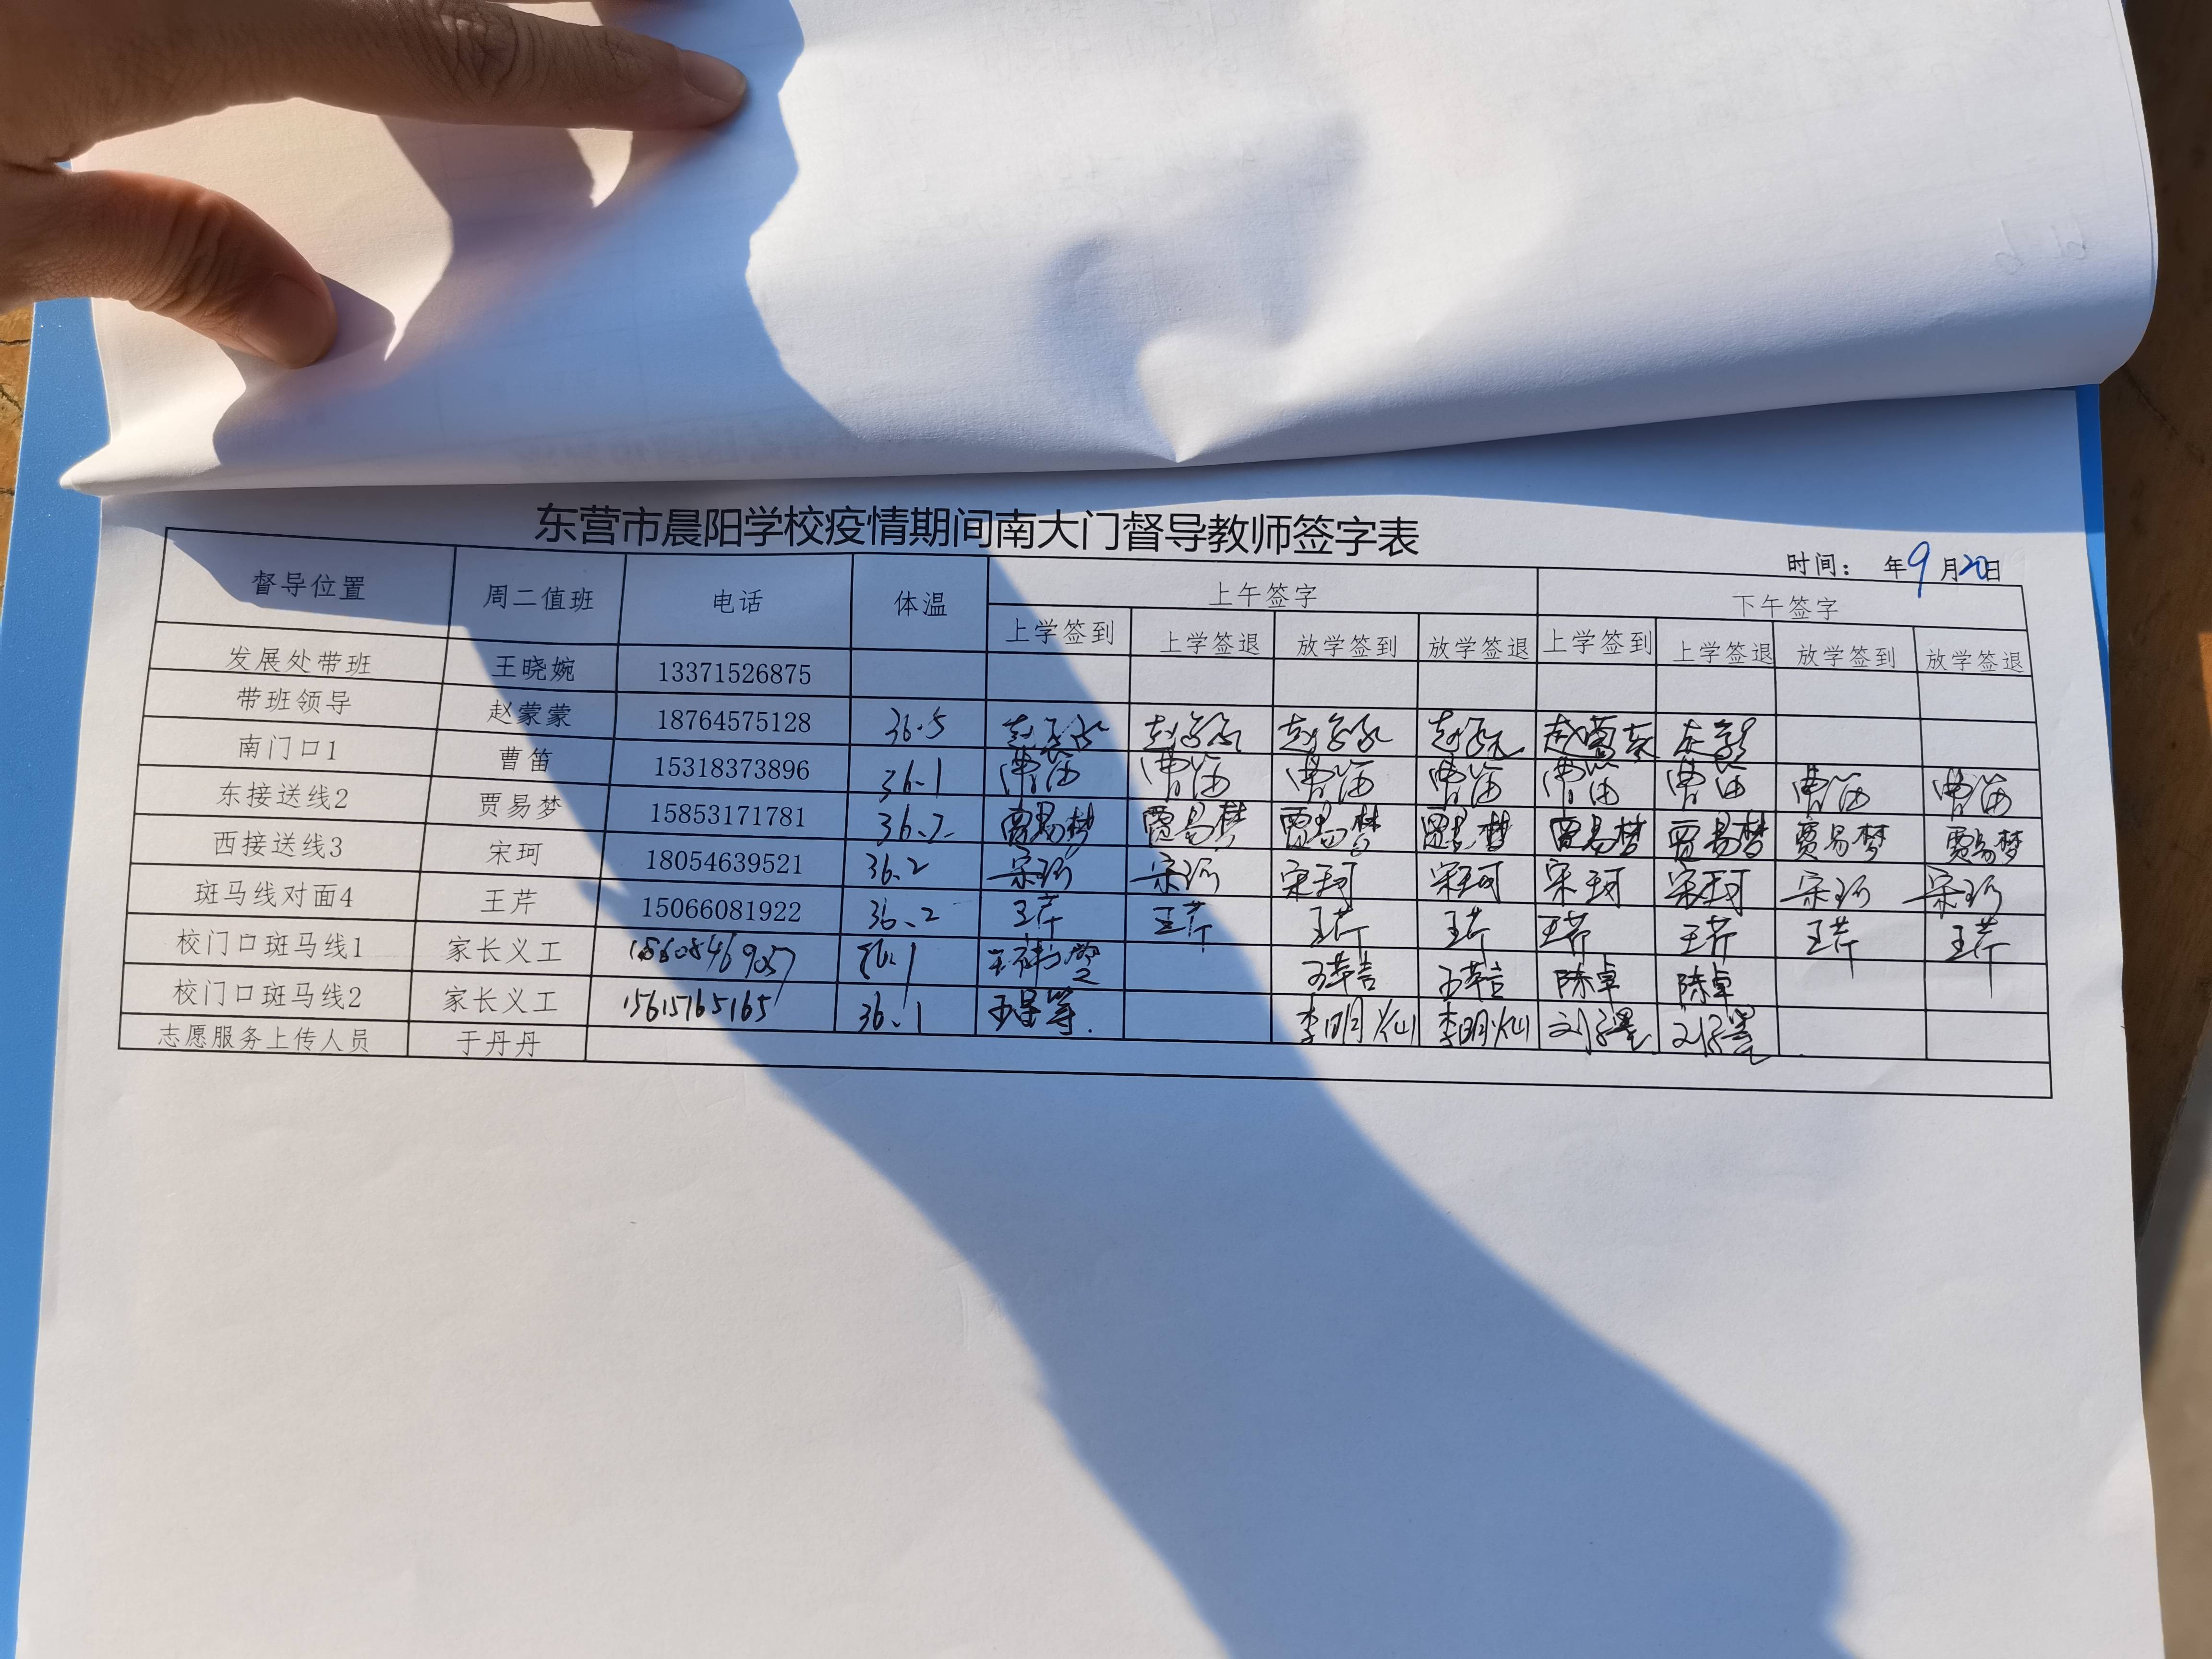 东营市晨阳学校疫情期间南大门督导教师签字表
时间： 年9月20日
督导位置 周二值班 电话 体温 上午签字 下午签字
上学签到 上学签退 放学签到 放学签退 上学签到 上学签退 放学签到 放学签退
发展处带班 王晓婉 13371526875
带班领导 赵蒙蒙 18764575128 36.5
南门口1 曹笛 15318373896 36.1 曹笛 曹笛 曹笛 曹笛 曹笛 曹笛 曹笛 曹笛
东接送线2 贾易梦 15853171781 36.2 贾易梦 贾易梦 贾易梦 贾易梦 贾易梦 贾易梦 贾易梦 贾易梦
西接送线3 宋珂 18054639521 36.2 宋珂 宋珂 宋珂 宋珂 宋珂 宋珂 宋珂 宋珂
斑马线对面4 王芹 15066081922 36.2 王芹 王芹 王芹 王芹 王芹 王芹 王芹 王芹
校门口斑马线1 家长义工 36.1 陈卓 陈卓
校门口斑马线2 家长义工 15615765165 36.1 李明灿 李明灿
志愿服务上传人员 于丹丹